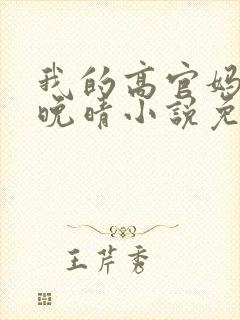 我的高官妈
晚晴小说免
王芹秀